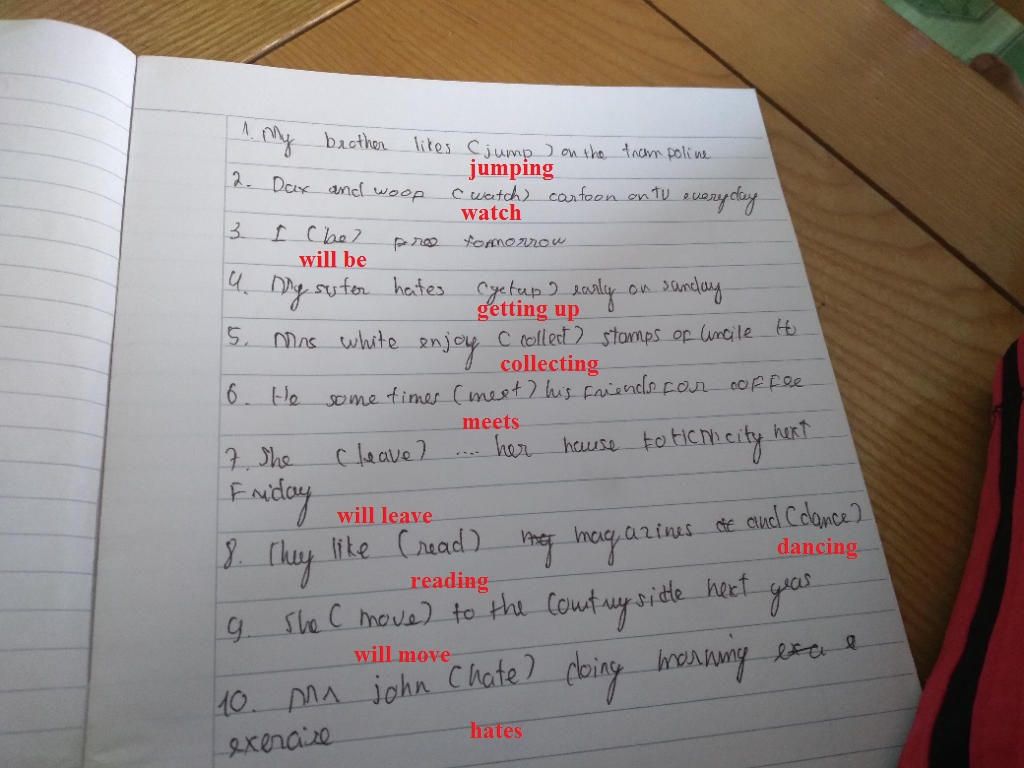 1. My brother likes (jump) on the trampoline
jumping
2. Dax and woop (watch) cartoon on TV everyday
watch
3 I (be) free tomorrow
will be
4. My sister hates (getup) early on sunday
getting up
5. Mrs white enjoy (collect) stamps of Uncile Ho
collecting
6. He some times (meet) his friends for coffee
meets
7. She (leave) .... her house to HCM city next
Friday
will leave
8. They like (read) magazines and (dance)
dancing
reading
9. She (move) to the countryside next year
will move
10. Mr john (hate) doing morning
exercise
hates